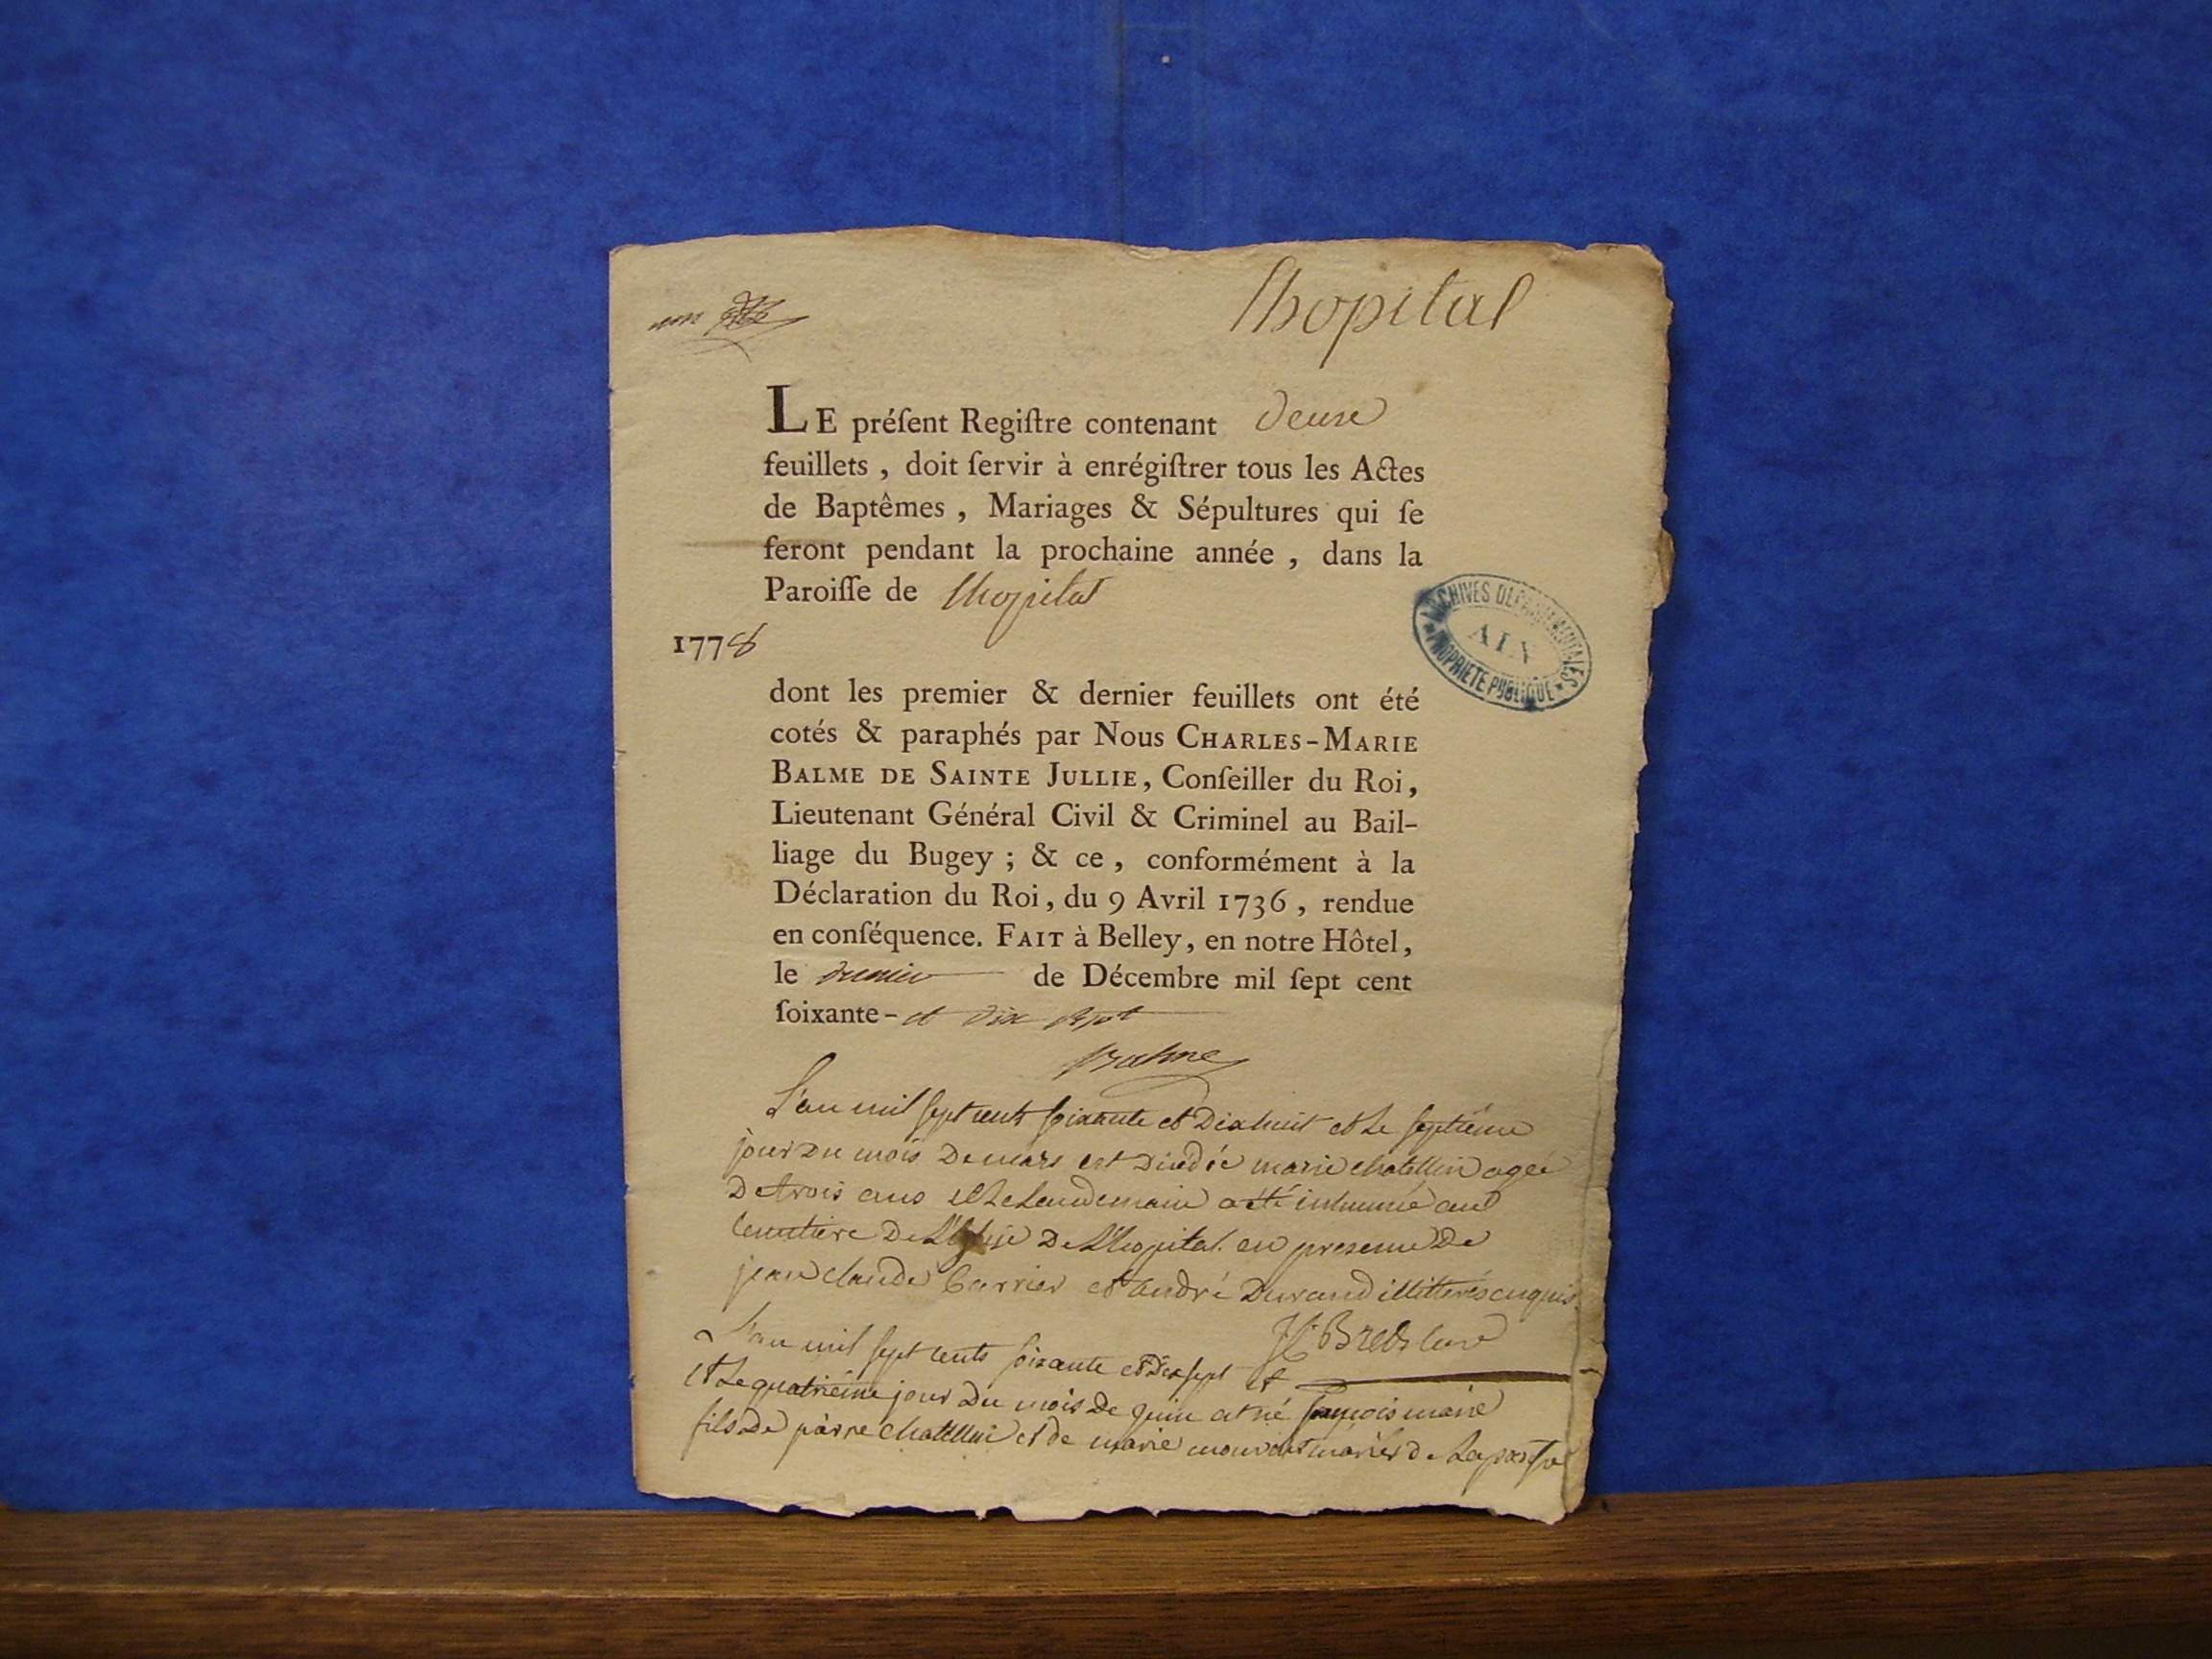 un
lhopital
LE préſent Regiſtre contenant deux
feuillets , doit ſervir à enrégiſtrer tous les Actes
de Baptêmes , Mariages & Sépultures qui ſe
feront pendant la prochaine année , dans la
Paroiſſe de lhopital
1778
ARCHIVES DÉPARTEMENTALES
AIN
PROPRIETE PUBLIQUE
dont les premier & dernier feuillets ont été
cotés & paraphés par Nous CHARLES-MARIE
BALME DE SAINTE JULLIE, Conſeiller du Roi,
Lieutenant Général Civil & Criminel au Bail-
liage du Bugey ; & ce , conformément à la
Déclaration du Roi, du 9 Avril 1736 , rendue
en conſéquence. FAIT à Belley, en notre Hôtel,
le premier de Décembre mil ſept cent
ſoixante - et dix sept
Balme
L'an mil sept cents soixante et Dixhuit et Le septième
jour Du mois De mars est Dédée marie chatellin agée
De trois ans et Le Lendemain a été inhumée au
Cemetière De L'église De L'hopital en presence De
jean claude Carrier et andré Durand illitterés enquis
Bret Curé
L'an mil sept cents soixante et Dix sept et
et Le quatrième jour Du mois De juin est né françois marie
fils De pierre chatellin et de marie mariés De La paroisse